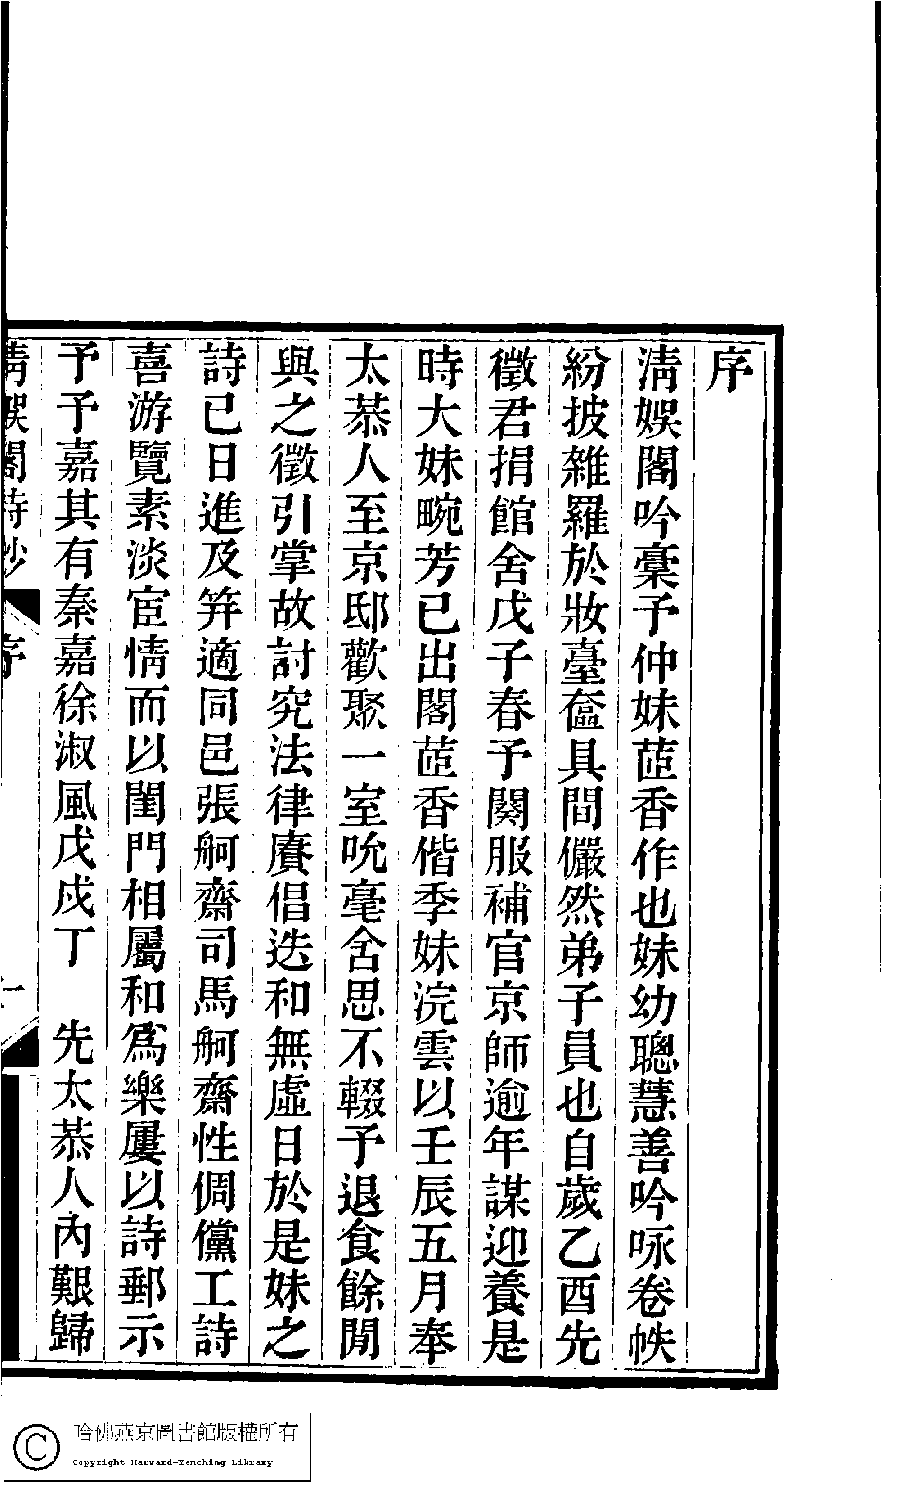 序
淸娛閣吟稾予仲妹茝香作也妹幼聰慧善吟咏卷帙
紛披雜羅於妝臺奩具間儼然弟子員也自歲乙酉先
徵君捐館舍戊子春予闋服補官京師逾年謀迎養是
時大妹畹芳已出閣茝香偕季妹浣雲以壬辰五月奉
太恭人至京邸歡聚一室吮毫舍思不輟予退食餘閒
與之徵引掌故討究法律賡倡迭和無虛日於是妹之
詩已日進及笄適同邑張舸齋司馬舸齋性倜儻工詩
喜游覽素淡宦情而以閨門相屬和爲樂屢以詩郵示
予予嘉其有秦嘉徐淑風戊戍丁　先太恭人內艱歸
淸娛閣詩鈔　序　一
哈佛燕京圖書館版權所有
Copyright Harvard-Yenching Library